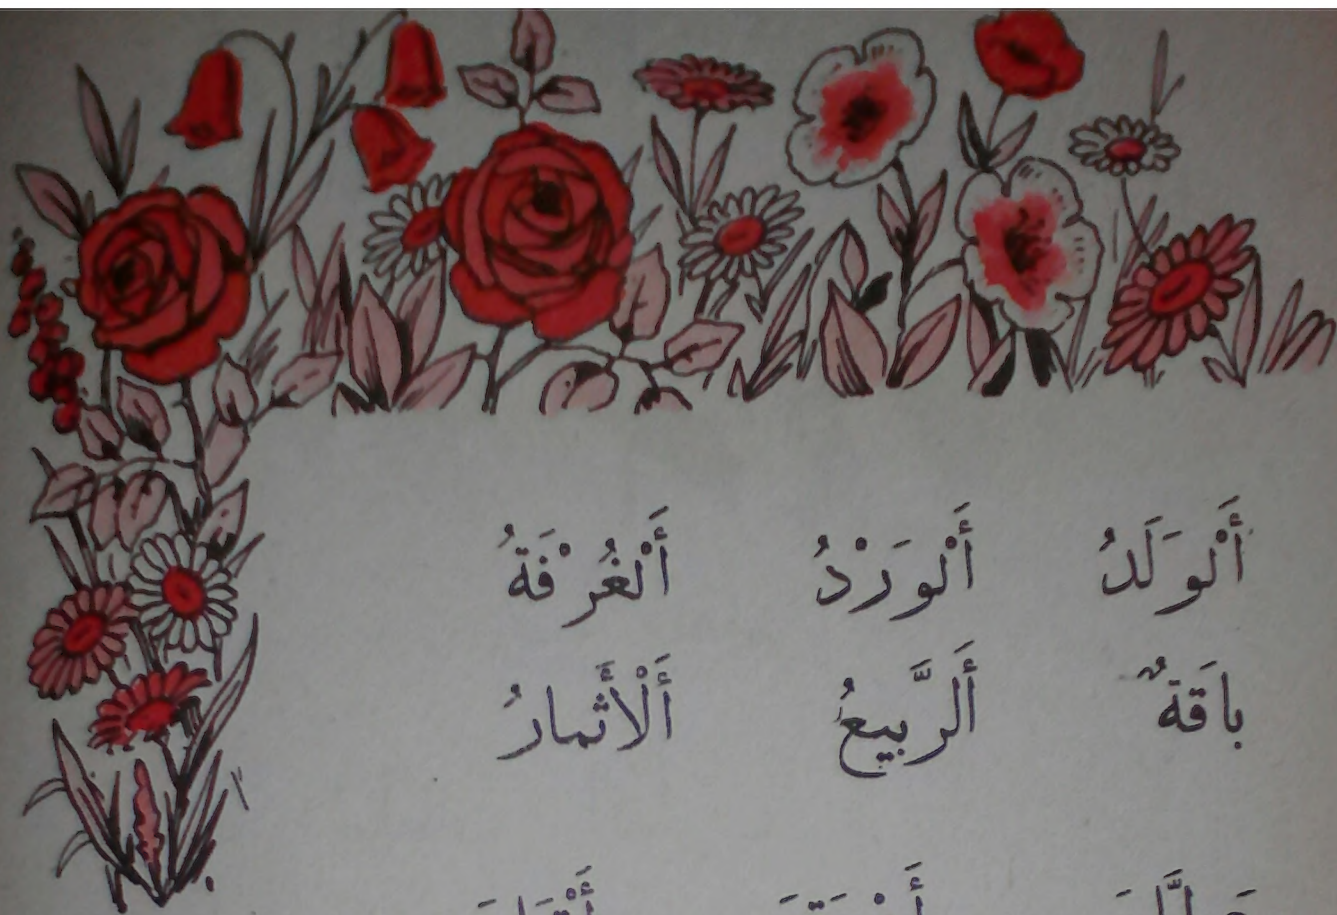 أَلْوَلَدُ أَلْوَرْدُ أَلْغُرْفَةُ
بَاقَةٌ أَلرَّبِيعُ أَلْأَثَمارُ